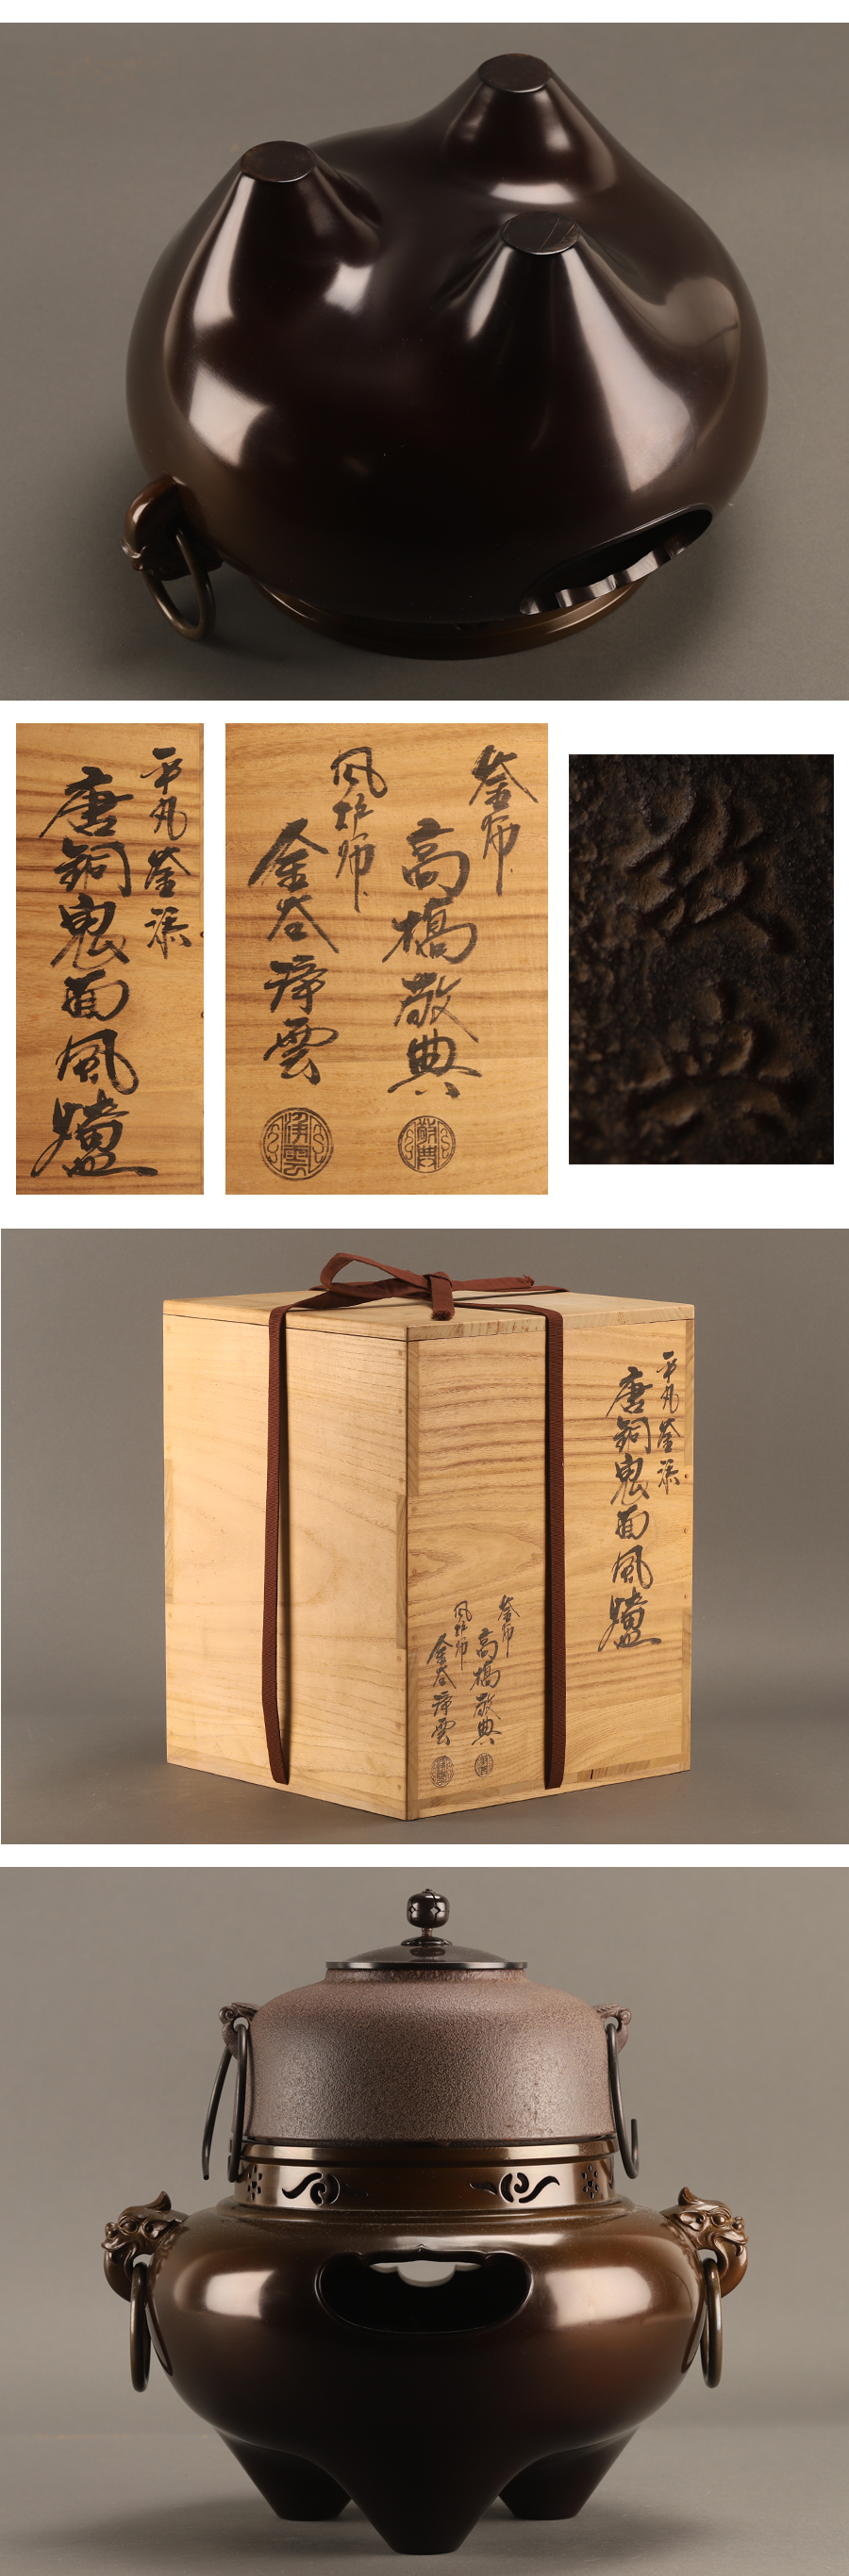 平丸釜添
唐銅鬼面風爐
釜師
高橋敬典
敬典
風炉師
金谷浄雲
浄雲
敬典
平丸釜添
唐銅鬼面風爐
釜師
高橋敬典
敬典
風炉師
金谷浄雲
浄雲